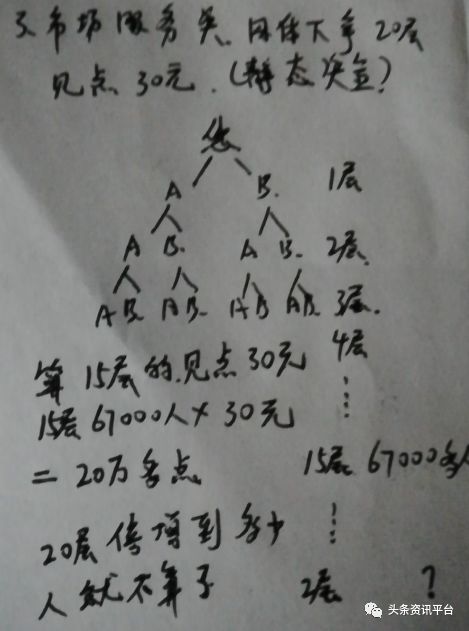 3市场服务奖.团体下享20层
见点30元.(静态奖金)
您
A B. 1层
A B. A B. 2层.
A B. A B. A B. A B. 3层.
4层
算15层的.见点30元
15层67000人×30元
=20万多点. 15层67000多人
20层倍增到多少
人就不算了 2层 ?
头条资讯平台